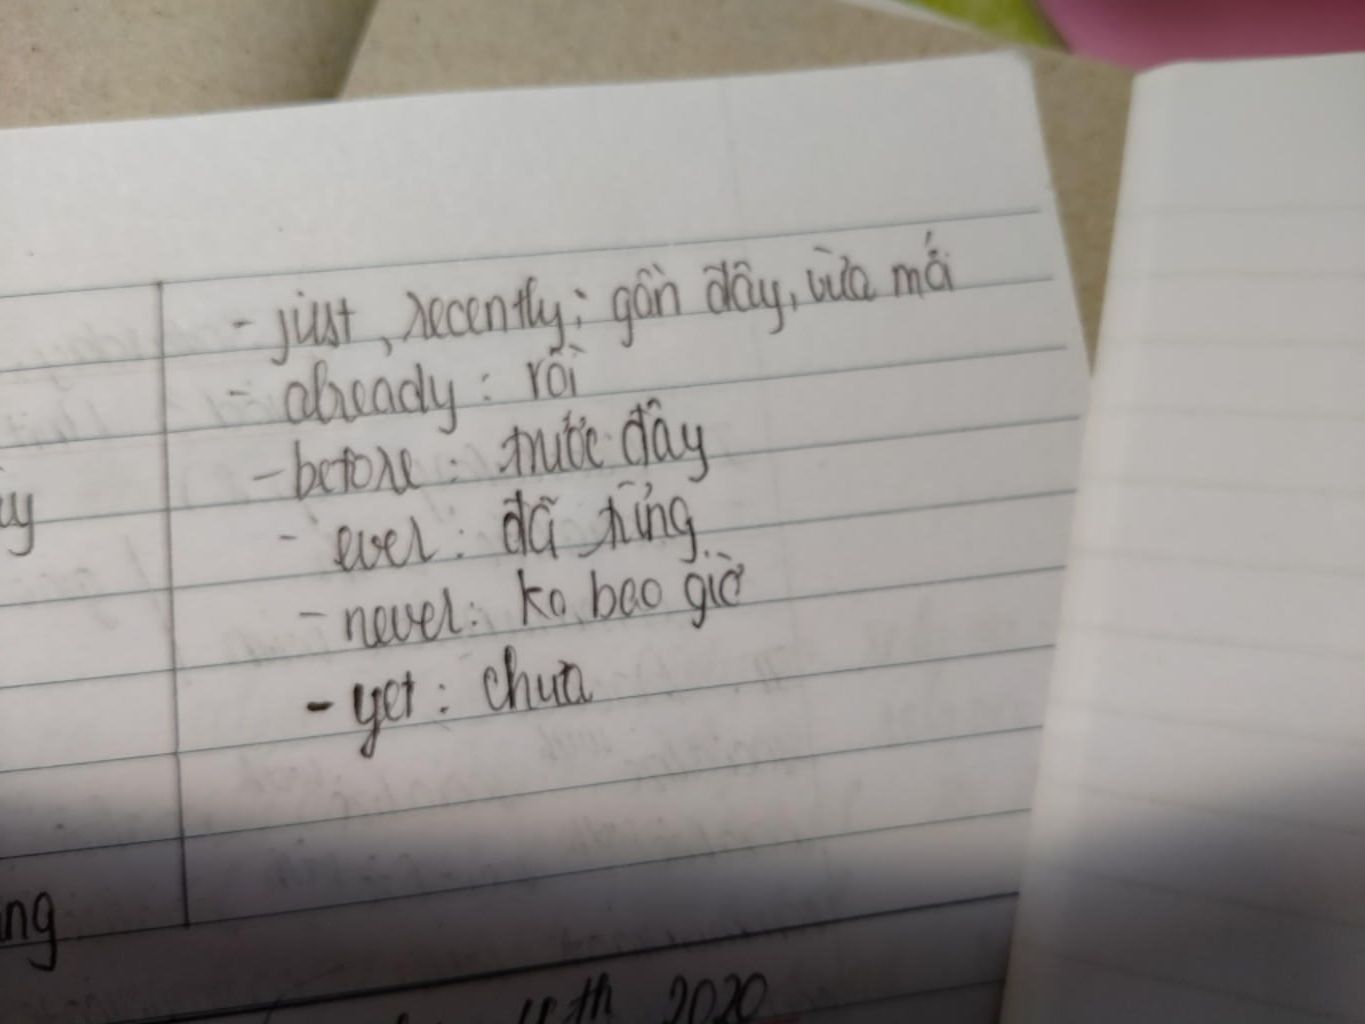 - just, recently: gần đây, vừa mới
- already: rồi
- before: trước đây
- ever: đã từng
- never: ko bao giờ
- yet: chưa
2020